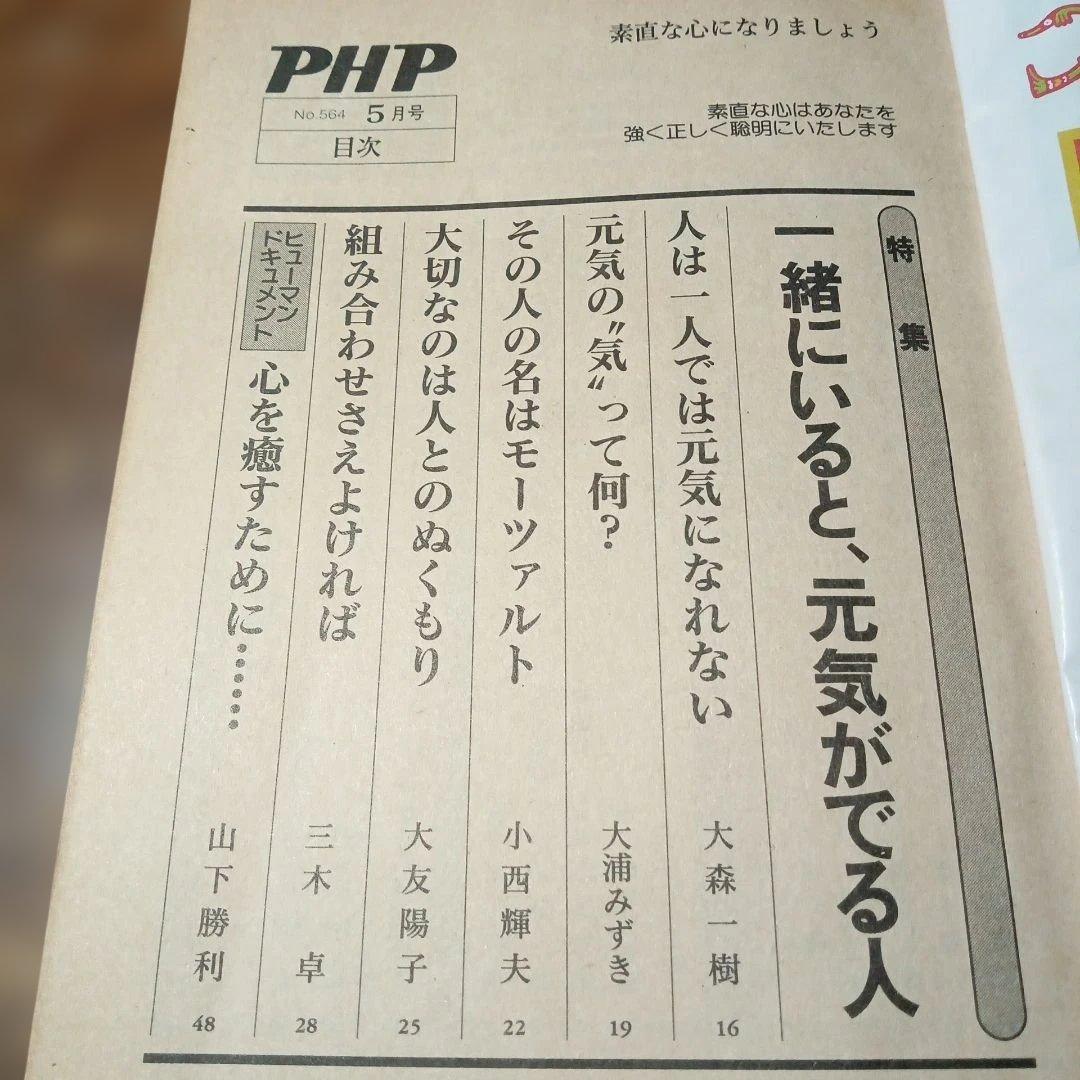 素直な心になりましょう
PHP
No.564 5月号
目次
素直な心はあなたを
強く正しく聡明にいたします
特集
一緒にいると、元気がでる人
人は一人では元気になれない 大森一樹 16
元気の〝気〟って何? 大浦みずき 19
その人の名はモーツァルト 小西輝夫 22
大切なのは人とのぬくもり 大友陽子 25
組み合わせさえよければ 三木卓 28
ヒューマン
ドキュメント
心を癒すために…… 山下勝利 48